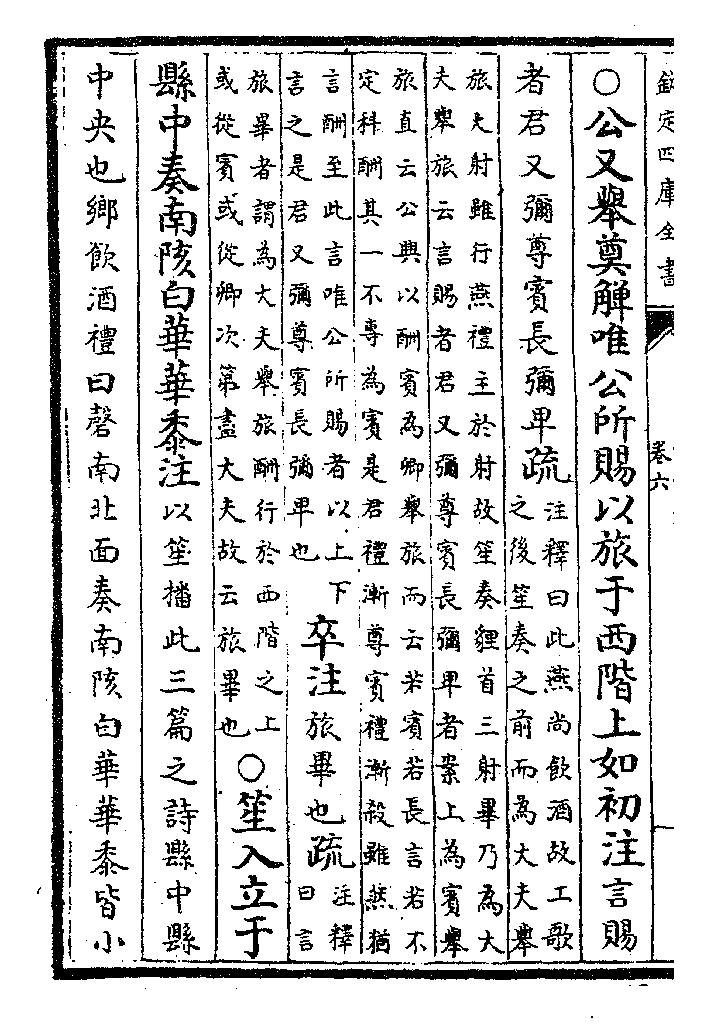 欽定四庫全書
卷六
○公又舉奠觶唯公所賜以旅于西階上如初注言賜
者君又彌尊賓長彌卑疏
注釋曰此燕尚飲酒故工歌
之後笙奏之前而為大夫舉
旅夫射雖行燕禮主於射故笙奏貍首三射畢乃為大
夫舉旅云言賜者君又彌尊賓長彌卑者案上為賓舉
旅直云公興以酬賓為卿舉旅而云若賓若長言若不
定科酬其一不專為賓是君禮漸尊賓禮漸殺雖然猶
言酬至此言唯公所賜者以上下
言之是君又彌尊賓長彌卑也
卒注旅畢也疏
注釋
曰言
旅畢者謂為大夫舉旅酬行於西階之上
或從賓或從卿次第盡大夫故云旅畢也
○笙入立于
縣中奏南陔白華華黍注以笙播此三篇之詩縣中縣
中央也鄉飲酒禮曰磬南北面奏南陔白華華黍皆小